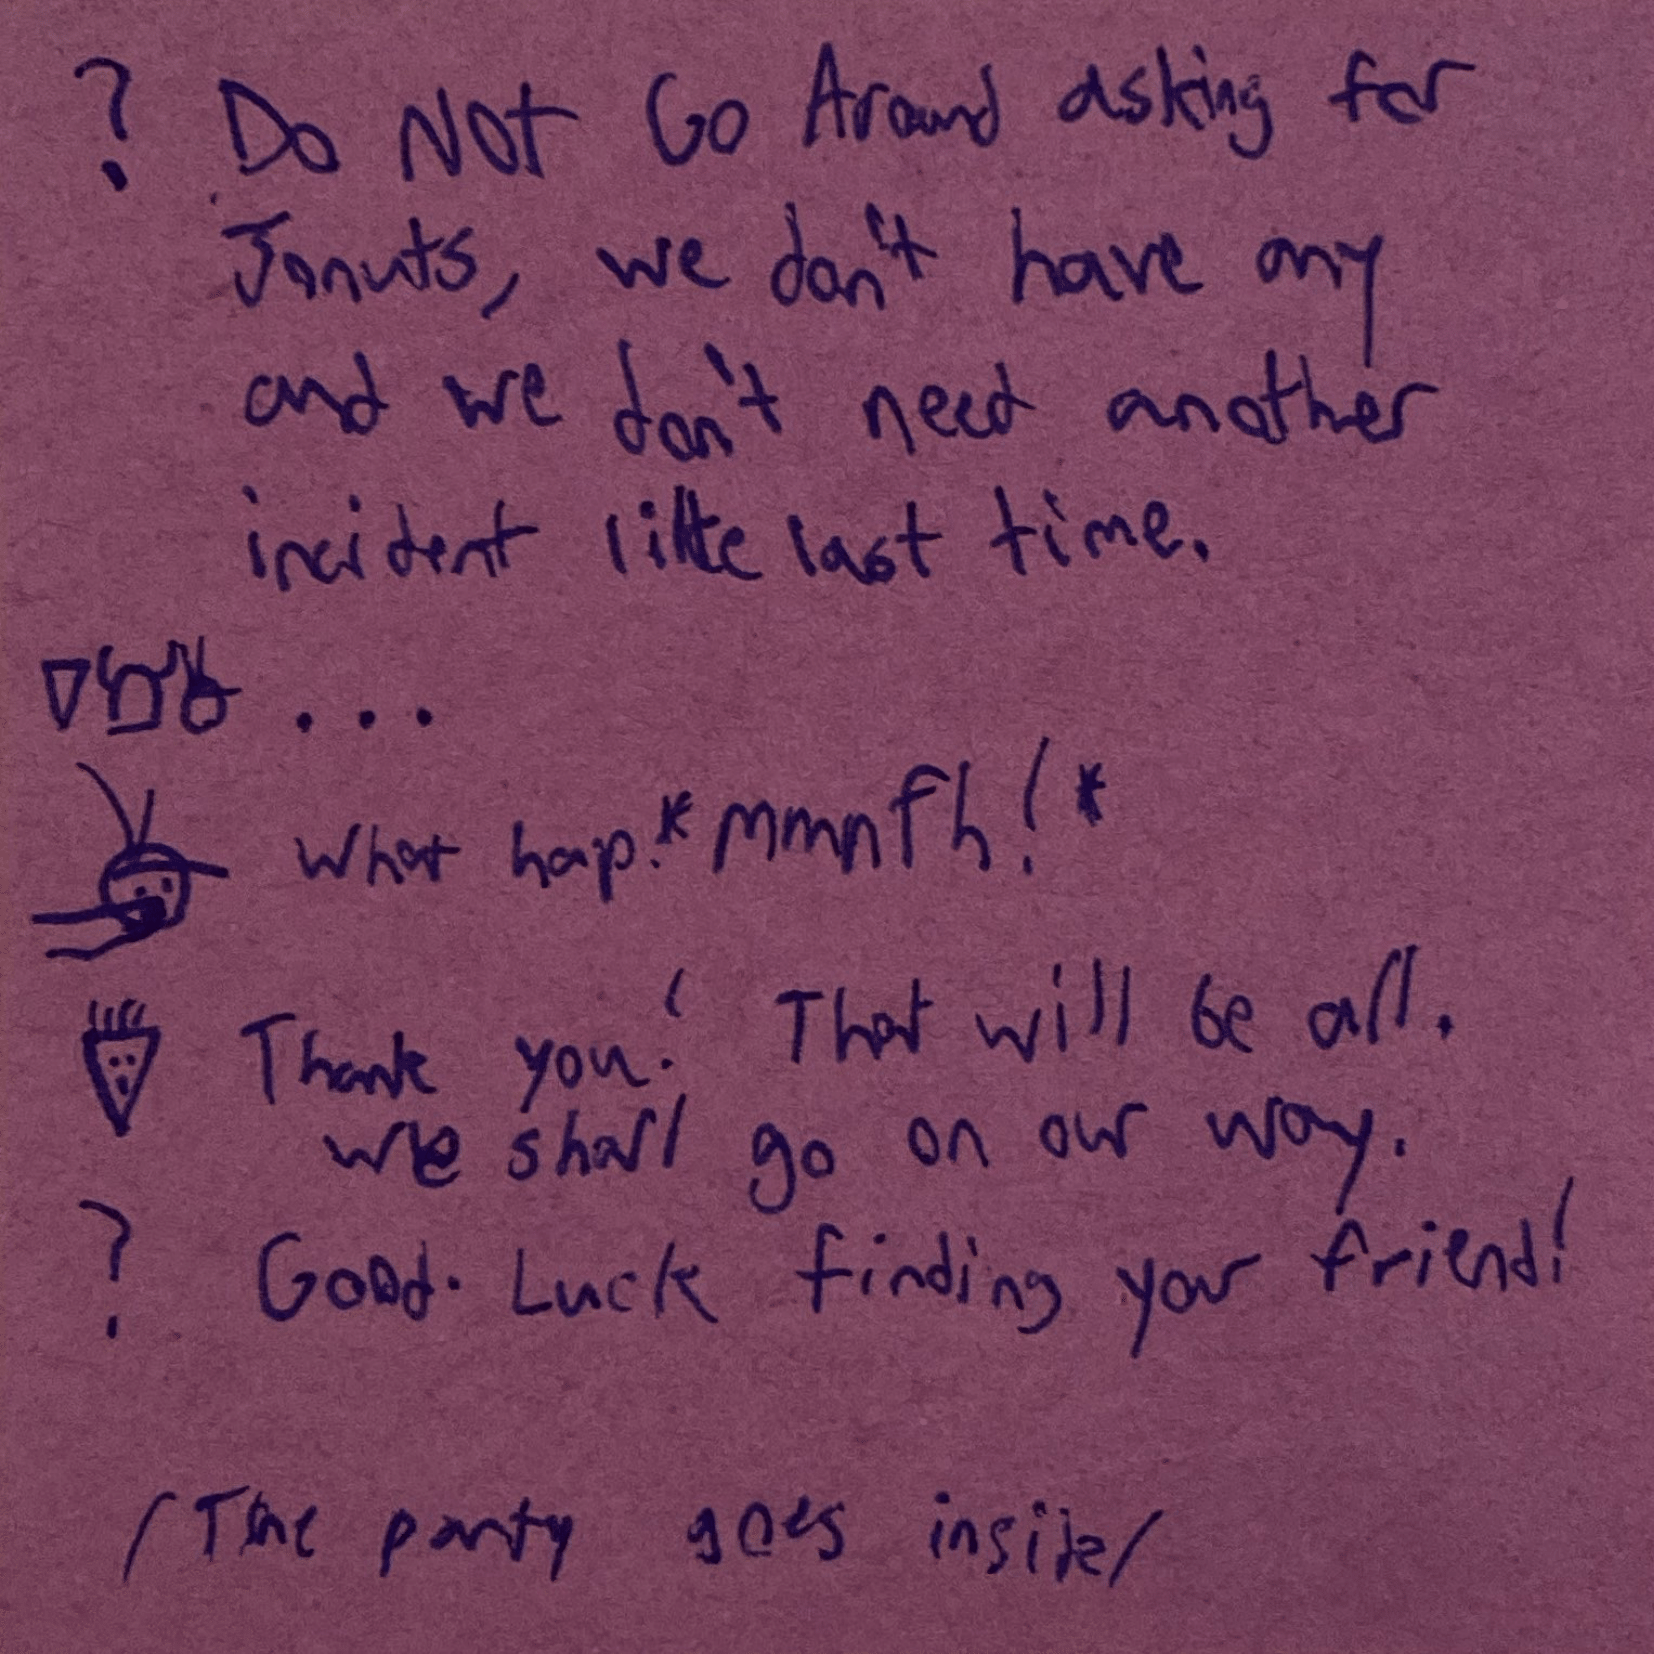 ? Do NOt Go Around asking for
Jonuts, we don't have any
and we don't need another
incident like last time.
...
What hap.*mmnfh!*
Thank you! That will be all.
we shall go on our way.
? Good. Luck finding your friend!
/The party goes inside/